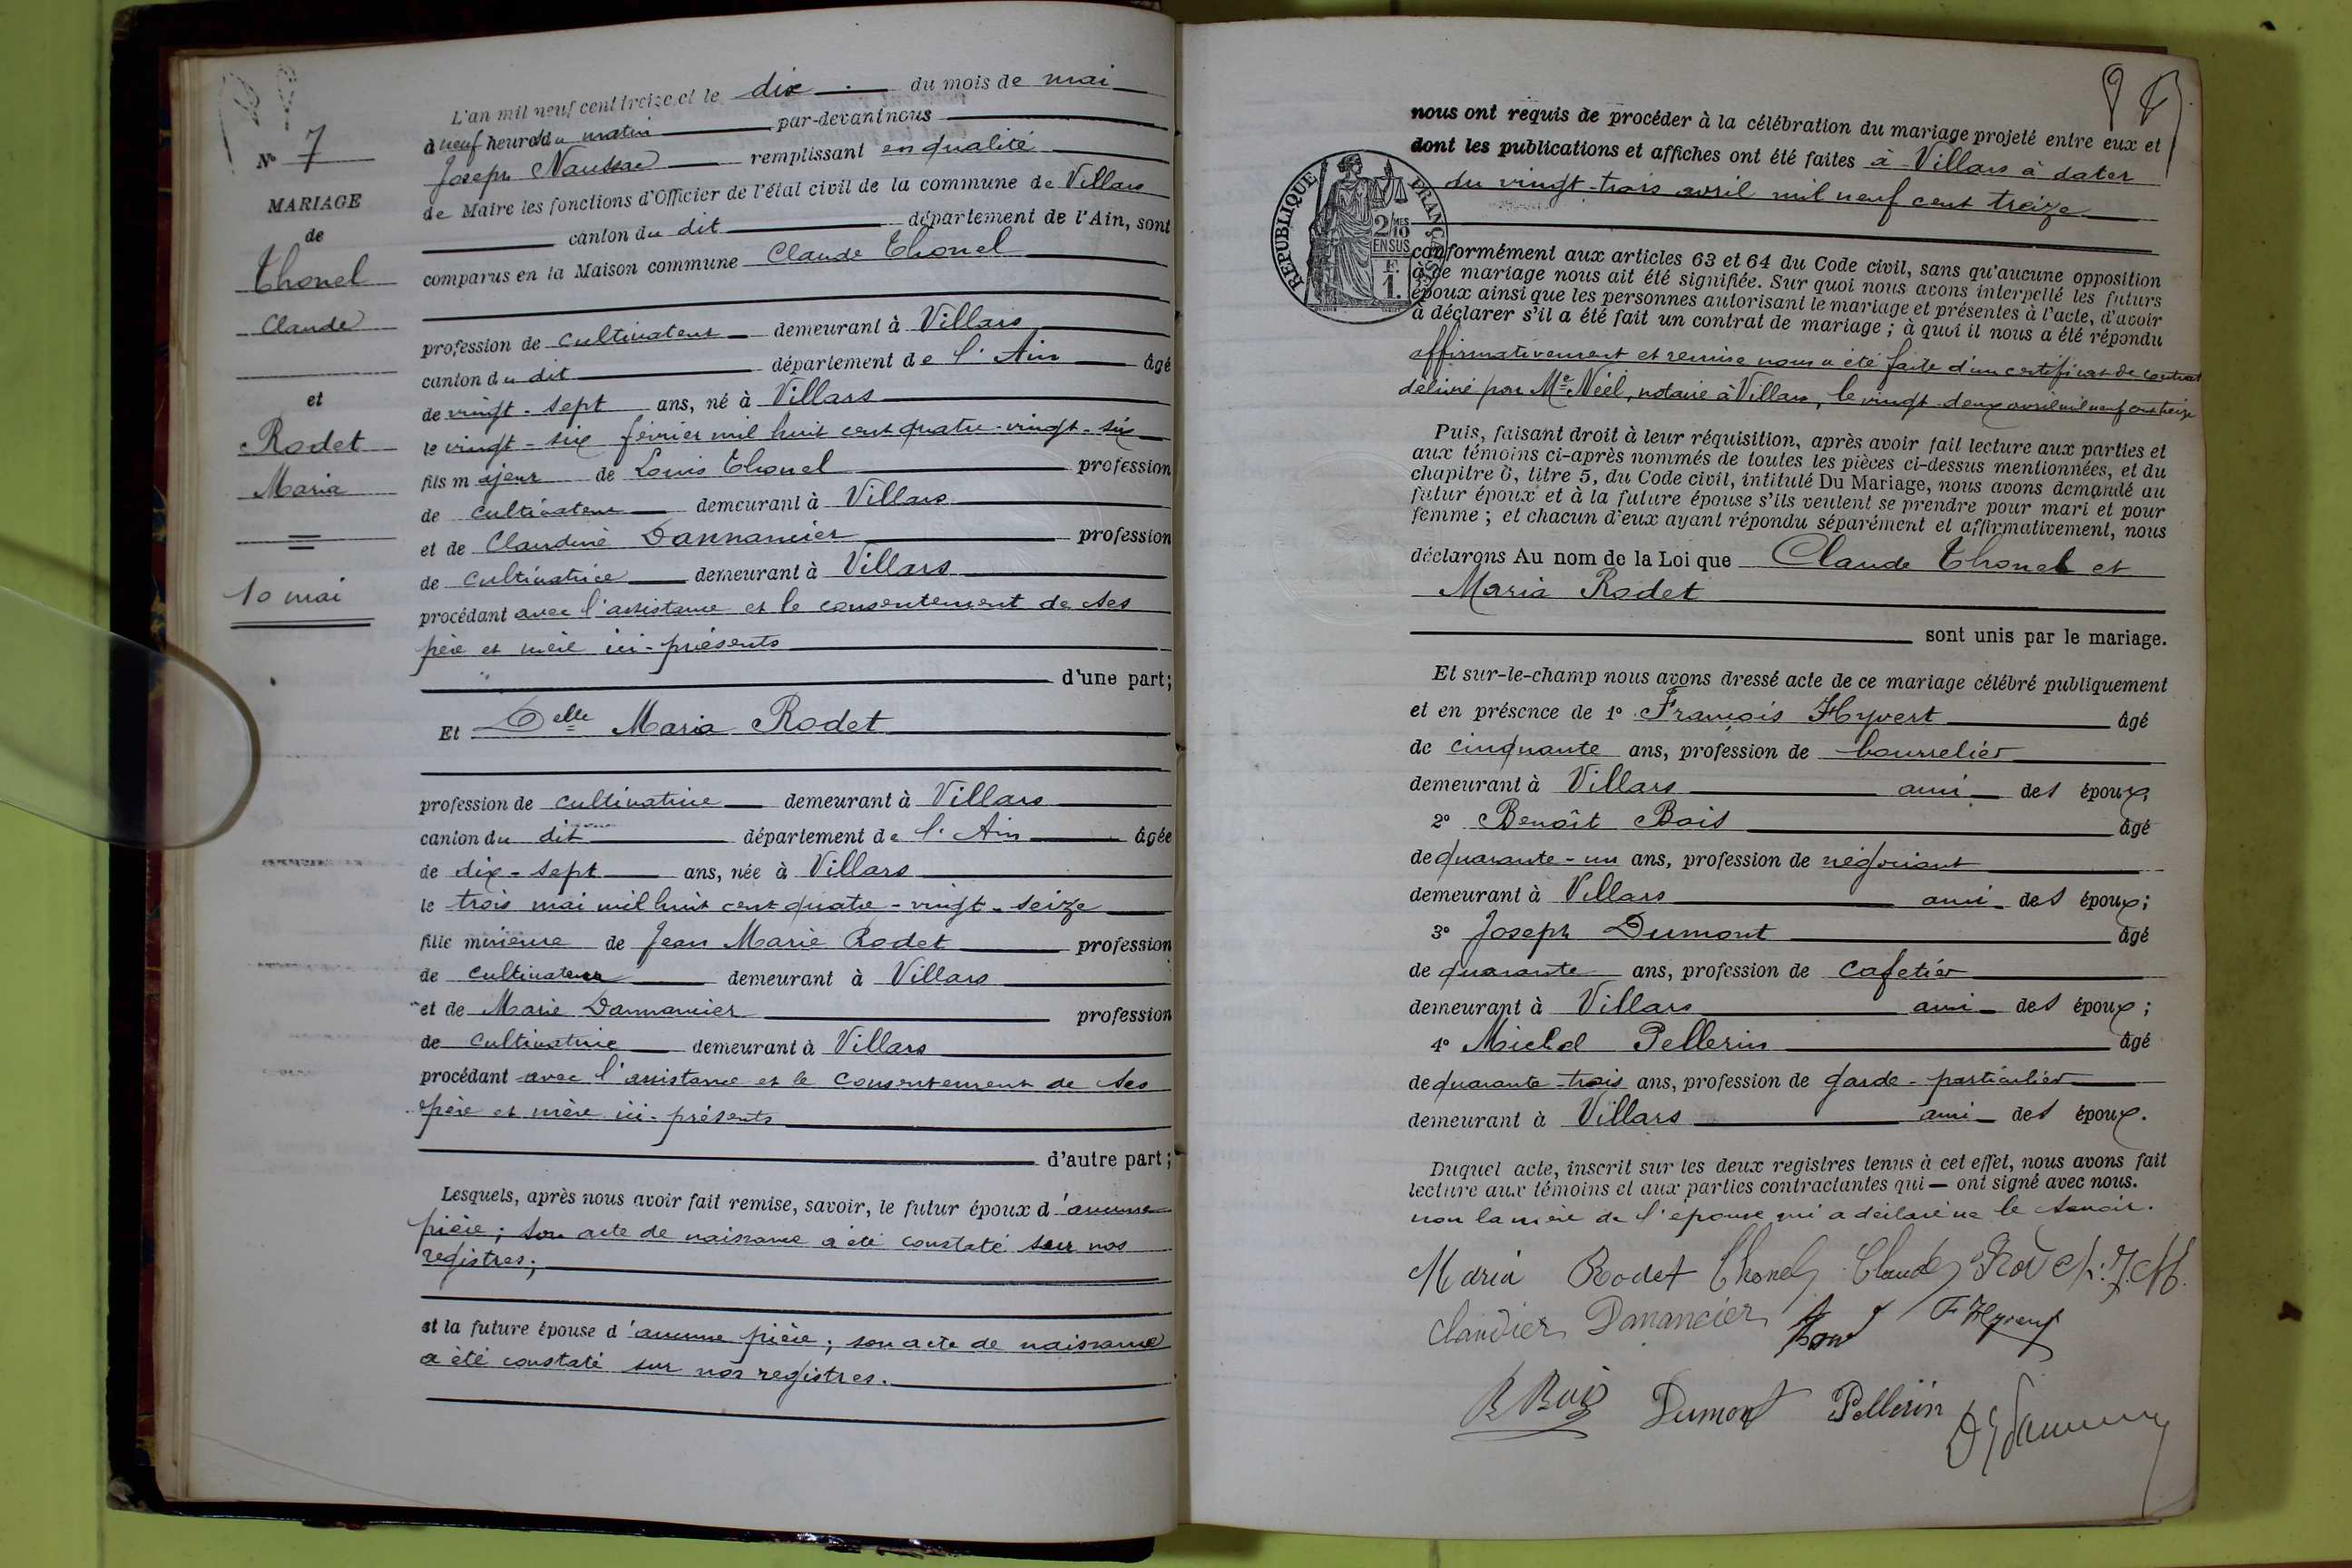 N° 7
MARIAGE
de
Thonel
Claude
et
Rodet
Maria
10 mai
L'an mil neuf cent treize et le dix du mois de mai
à neuf heures du matin par-devant nous
Joseph remplissant en qualité
de Maire les fonctions d'Officier de l'état civil de la commune de Villars
canton du dit département de l'Ain, sont
comparus en la Maison commune Claude Thonel
profession de cultivateur demeurant à Villars
canton du dit département de l'Ain âgé
de vingt-sept ans, né à Villars
le vingt-six février mil huit cent quatre-vingt-six
fils majeur de Louis Thonel profession
de cultivateur demeurant à Villars
et de Claudine Dannancier profession
de cultivatrice demeurant à Villars
procédant avec l'assistance et le consentement de ses
père et mère ici-présents
d'une part;
Et Delle Maria Rodet
profession de cultivatrice demeurant à Villars
canton du dit département de l'Ain âgée
de dix-sept ans, née à Villars
le trois mai mil huit cent quatre-vingt-seize
fille mineure de Jean Marie Rodet profession
de cultivateur demeurant à Villars
et de Marie Dannancier profession
de cultivatrice demeurant à Villars
procédant avec l'assistance et le consentement de ses
père et mère ici-présents
d'autre part;
Lesquels, après nous avoir fait remise, savoir, le futur époux d'aucune
pièce; son acte de naissance a été constaté sur nos
registres;
et la future épouse d'aucune pièce; son acte de naissance
a été constaté sur nos registres.
nous ont requis de procéder à la célébration du mariage projeté entre eux et
dont les publications et affiches ont été faites à Villars à dater
du vingt-trois avril mil neuf cent treize
RÉPUBLIQUE FRANÇAISE
2/10 MES
EN SUS
1 F.
conformément aux articles 63 et 64 du Code civil, sans qu'aucune opposition
à ce mariage nous ait été signifiée. Sur quoi nous avons interpellé les futurs
époux ainsi que les personnes autorisant le mariage et présentes à l'acte, d'avoir
à déclarer s'il a été fait un contrat de mariage; à quoi il nous a été répondu
affirmativement et remise nous a été faite d'un certificat de contrat
délivré par Me Néel, notaire à Villars, le vingt-deux avril mil neuf cent treize
Puis, faisant droit à leur réquisition, après avoir fait lecture aux parties et
aux témoins ci-après nommés de toutes les pièces ci-dessus mentionnées, et du
chapitre 6, titre 5, du Code civil, intitulé Du Mariage, nous avons demandé au
futur époux et à la future épouse s'ils veulent se prendre pour mari et pour
femme; et chacun d'eux ayant répondu séparément et affirmativement, nous
déclarons Au nom de la Loi que Claude Thonel et
Maria Rodet
sont unis par le mariage.
Et sur-le-champ nous avons dressé acte de ce mariage célébré publiquement
et en présence de 1° François Hyvert âgé
de cinquante ans, profession de bourrelier
demeurant à Villars ami des époux,
2° Benoît Bois âgé
de quarante-un ans, profession de négociant
demeurant à Villars ami des époux;
3° Joseph Dumont âgé
de quarante ans, profession de cafetier
demeurant à Villars ami des époux;
4° Michel Pellerin âgé
de quarante-trois ans, profession de garde-particulier
demeurant à Villars ami des époux.
Duquel acte, inscrit sur les deux registres tenus à cet effet, nous avons fait
lecture aux témoins et aux parties contractantes qui — ont signé avec nous.
non la mère de l'épouse qui a déclaré ne le savoir.
Maria Rodet Thonel Claude
Danancier
B Bois Dumont Pellerin